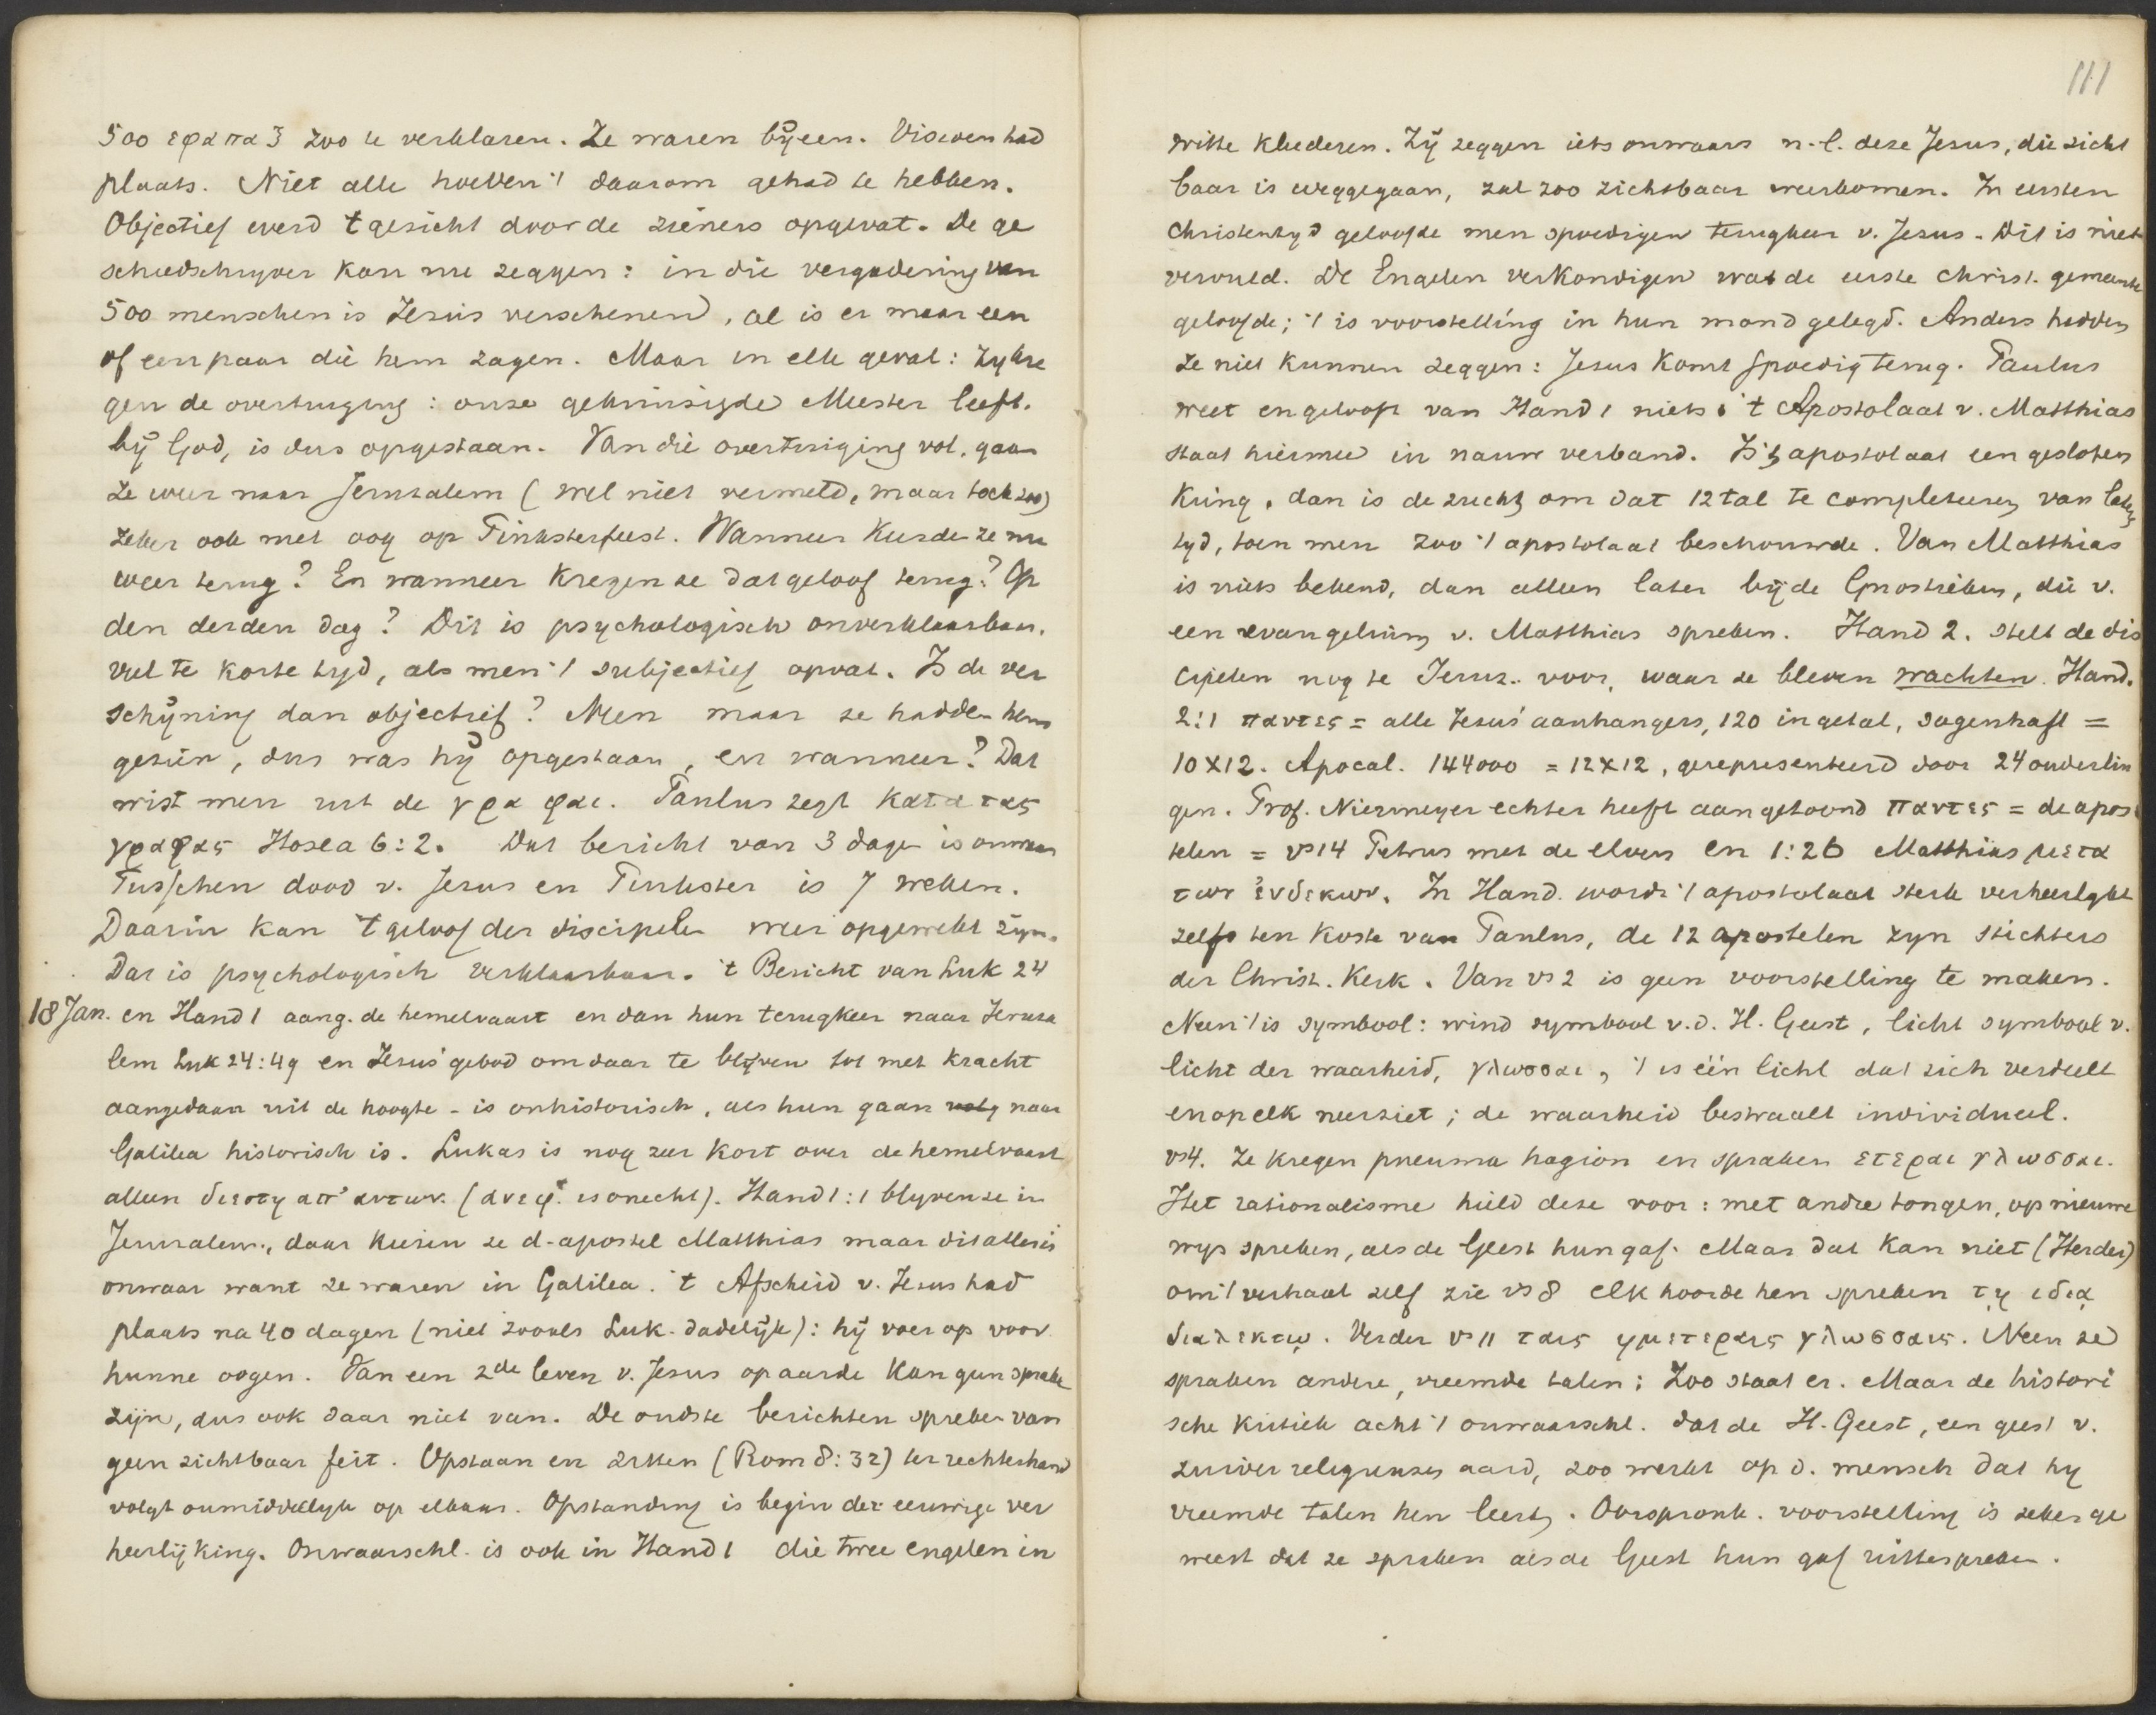 500 εφαπαξ zoo te verklaren. Ze waren bijeen. Visioen had
plaats. Niet alle hoeven 't daarom gehad te hebben.
Objectief werd 't gesicht door de zieners opgevat. De ge
schiedschryver kan nu zeggen: in die vergadering van
500 menschen is Jesus verschenen, al is er maar een
of een paar die hem zagen. Maar in elk geval: zy kre
gen de overtuiging: onze gekruisigde Meester leeft.
bij God, is dus opgestaan. Van die overtuiging vol, gaan
ze weer naar Jerusalem (wel niet vermeld, maar toch zoo)
zeker ook met oog op Pinksterfeest. Wanneer keerden ze nu
weer terug? En wanneer kregen ze dat geloof terug? Op
den derden dag? Dit is psychologisch onverklaarbaar,
veel te korte tyd, als men 't subjectief opvat. Is de ver
schijning dan objectief? Neen maar ze hadden hem
gezien, dus was hij opgestaan, en wanneer? Dat
wist men uit de γραφαι. Paulus zegt κατα τας
γραφας Hosea 6:2. Dat bericht van 3 dagen is onwaar
Tusschen dood v. Jesus en Pinkster is 7 weken.
Daarin kan 't geloof der discipelen weer opgewekt zijn.
Dat is psychologisch verklaarbaar. 't Bericht van Luk 24
18 Jan. en Hand 1 aang. de hemelvaart en dan hun terugkeer naar Jerusa
lem Luk 24:49 en Jesus' gebod om daar te blyven tot met kracht
aangedaan uit de hoogte - is onhistorisch, als hun gaan naar
Galilea historisch is. Lukas is nog zeer kort over de hemelvaart
alleen διεστη απ' αυτων. (ανεφ. is onecht). Hand 1:1 blyven ze in
Jerusalem, daar kiezen ze d. apostel Matthias maar dit alles is
onwaar want ze waren in Galilea. 't Afscheid v. Jesus had
plaats na 40 dagen (niet zooals Luk. dadelijk): hij voer op voor
hunne oogen. Van een 2de leven v. Jesus op aarde kan geen sprake
zijn, dus ook daar niet van. De oudste berichten spreken van
geen zichtbaar feit. Opstaan en zitten (Rom 8:32) ter rechterhand
volgt onmiddellyk op elkaar. Opstanding is begin der eeuwige ver
heerlijking. Onwaarschl. is ook in Hand 1 die twee engelen in
111
witte kleederen. Zij zeggen iets onwaars n.l. deze Jesus, die zicht
baar is weggegaan, zal zoo zichtbaar weerkomen. In eersten
Christentyd geloofde men spoedigen terugkeer v. Jesus. Dit is niet
vervuld. De Engelen verkondigen wat de eerste Christ. gemeente
geloofde; 't is voorstelling in hun mond gelegd. Anders hadden
ze niet kunnen zeggen: Jesus komt spoedig terug. Paulus
weet en gelooft van Hand 1 niets. 't Apostolaat v. Matthias
staat hiermee in nauw verband. Is 't apostolaat een gesloten
kring, dan is de zucht om dat 12tal te completeeren van lateren
tyd, toen men zoo 't apostolaat beschouwde. Van Matthias
is niets bekend, dan alleen later bij de Gnostieken, die v.
een evangelium v. Matthias spreken. Hand 2. stelt de dis
cipelen nog te Jeruz. voor, waar ze bleven wachten. Hand.
2:1 παντες = alle Jesus' aanhangers, 120 in getal, sagenhaft =
10 x 12. Apocal. 144000 = 12 x 12, gerepresenteerd door 24 ouderlin
gen. Prof. Niermeyer echter heeft aangetoond παντες = de apos
telen = vs 14 Petrus met de elven en 1:26 Matthias μετα
των ἑνδεκων. In Hand. wordt 't apostolaat sterk verheerlykt
zelfs ten koste van Paulus, de 12 apostelen zyn stichters
der Christ. Kerk. Van vs 2 is geen voorstelling te maken.
Neen 't is symbool: wind symbool v.d. H. Geest, licht symbool v.
licht der waarheid, γλωσσαι, 't is één licht dat zich verdeelt
en op elk neerziet; de waarheid bestraalt individueel.
vs 4. Ze kregen pneuma hagion en spraken ετεραι γλωσσαι.
Het rationalisme hield deze voor: met andre tongen, op nieuwe
wys spreken, als de Geest hun gaf. Maar dat kan niet (Herder)
om 't verhaal zelf zie vs 8 elk hoorde hen spreken τῃ ιδιᾳ
διαλεκτῳ. Verder vs 11 ταις ημετεραις γλωσσαις. Neen ze
spraken andere, vreemde talen; Zoo staat er. Maar de histori
sche kritiek acht 't onwaarschl. dat de H. Geest, een geest v.
zuiver religieuzen aard, zoo werkt op d. mensch dat hy
vreemde talen hen leert. Oorspronk. voorstelling is zeker ge
weest dat ze spraken als de Geest hun gaf uittespreken.